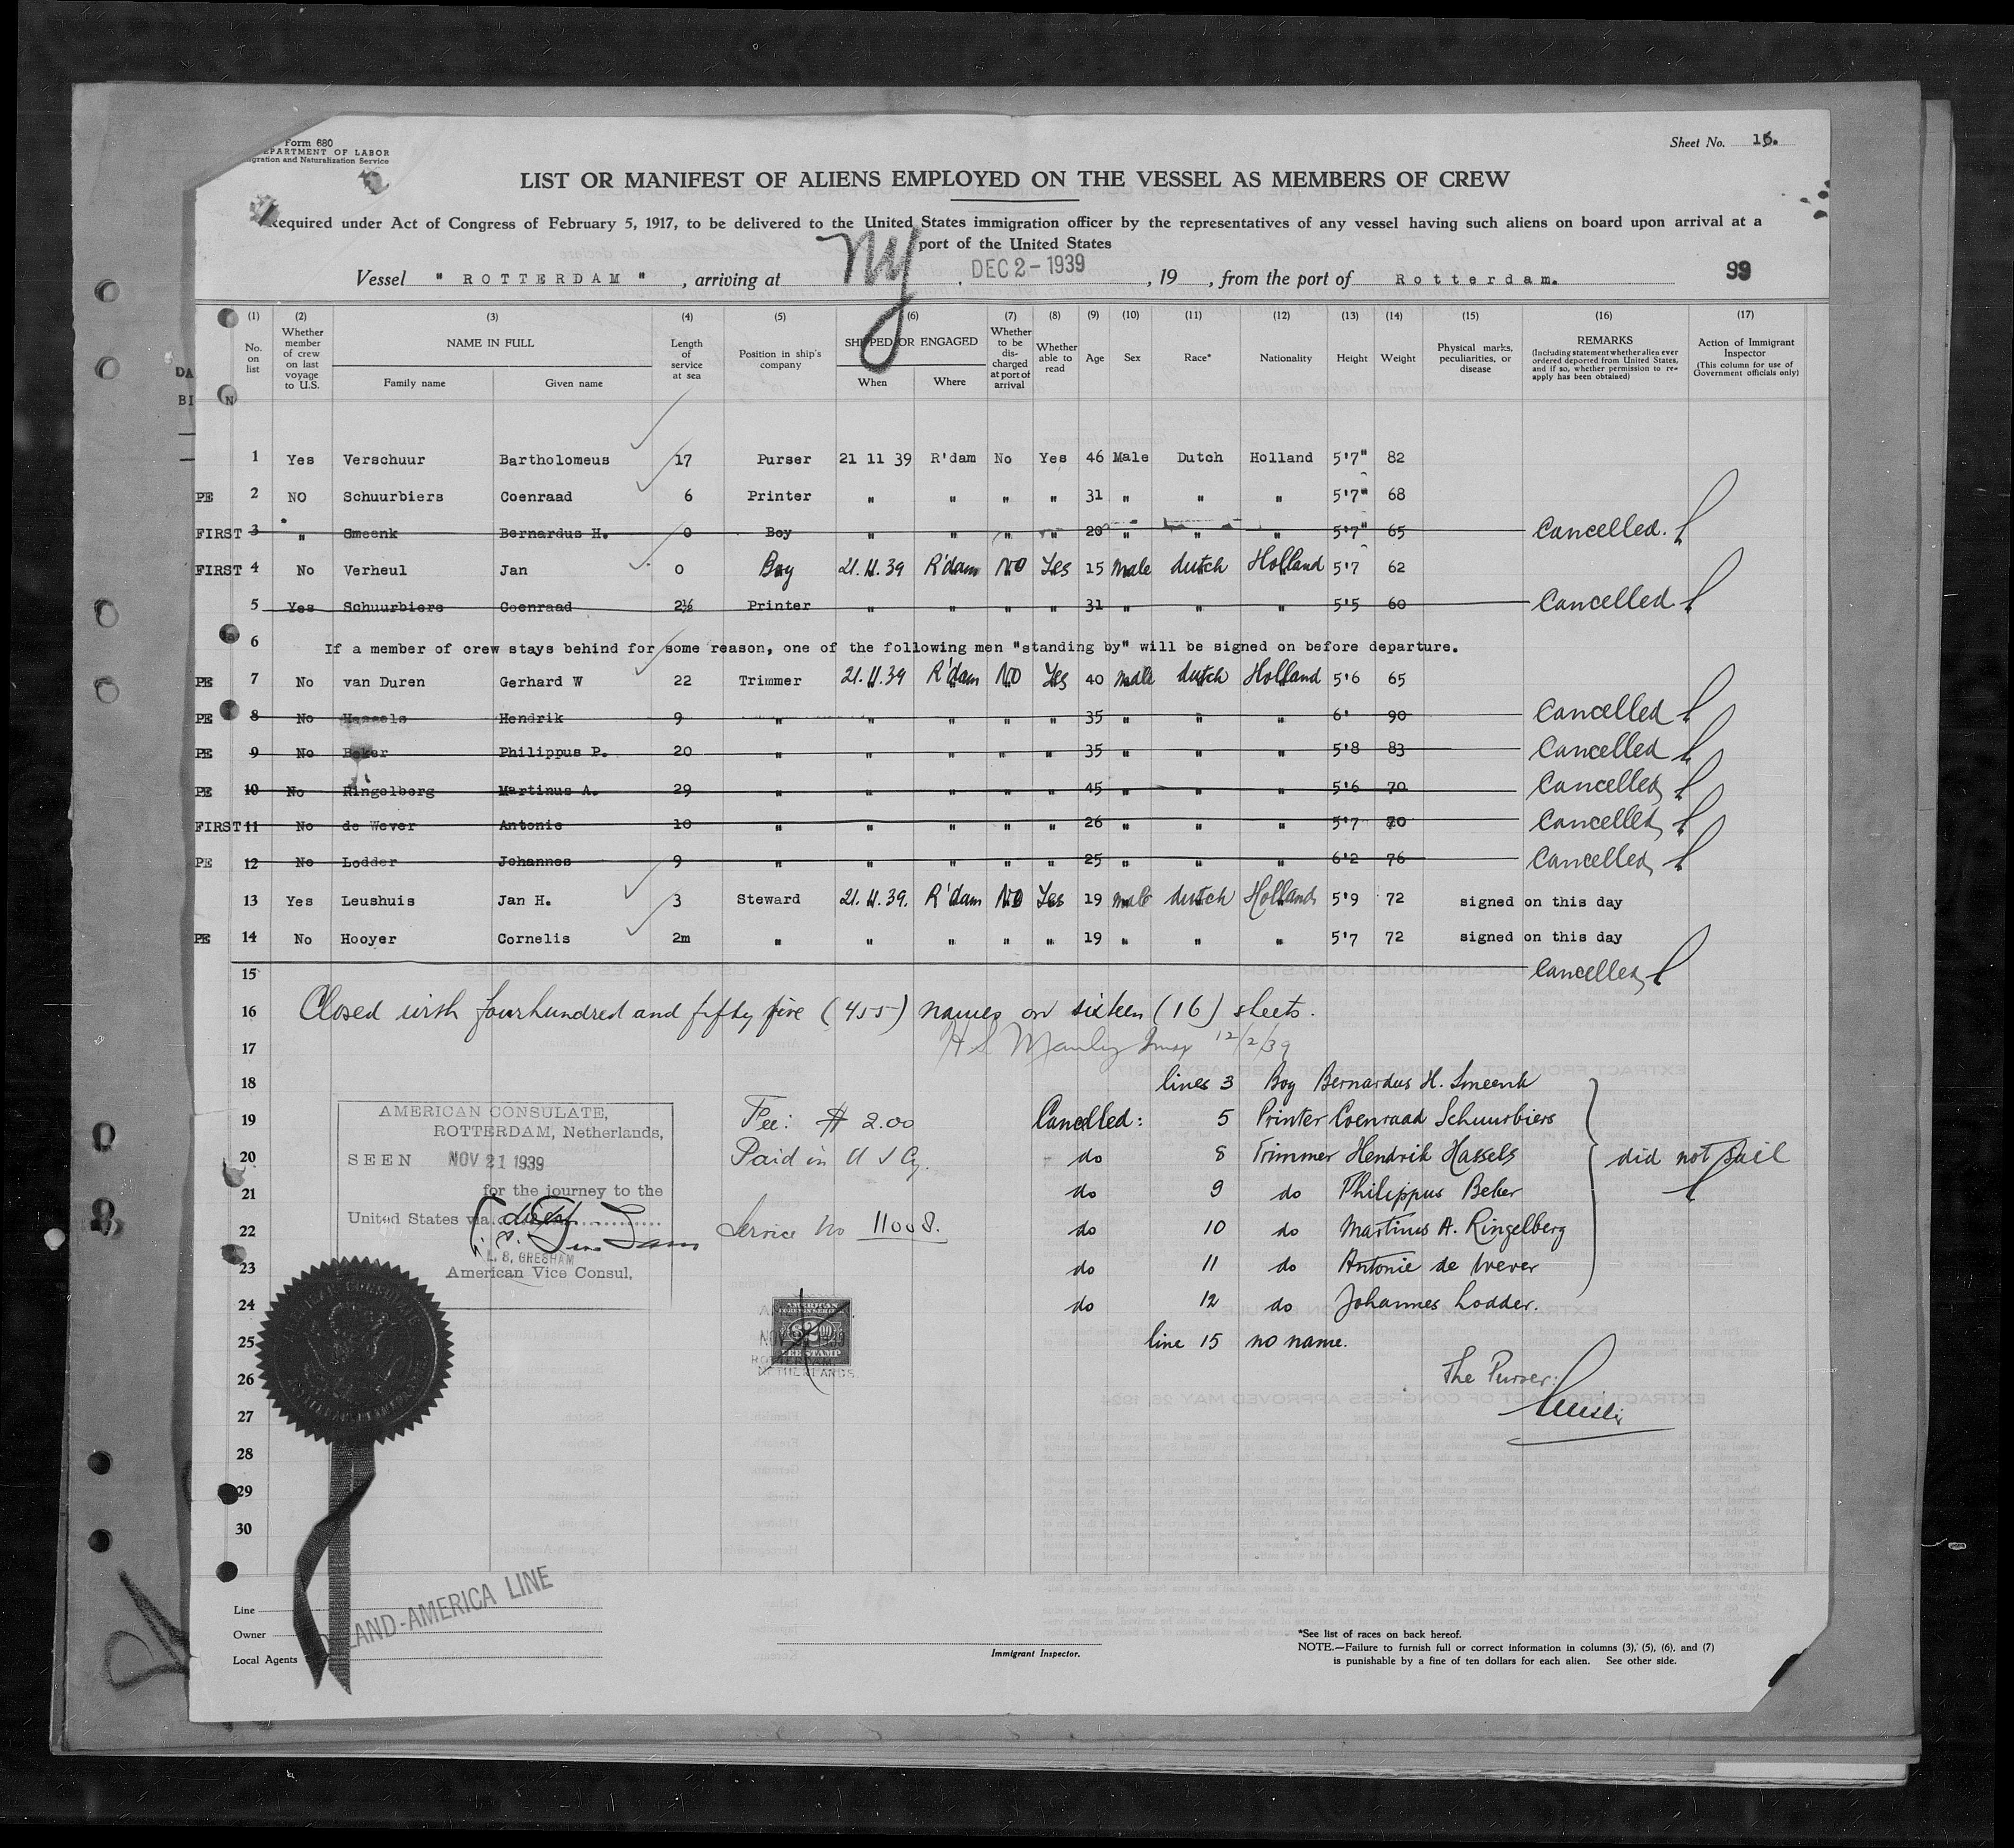 Form 680
DEPARTMENT OF LABOR
Immigration and Naturalization Service
Sheet No. 16.
LIST OR MANIFEST OF ALIENS EMPLOYED ON THE VESSEL AS MEMBERS OF CREW
Required under Act of Congress of February 5, 1917, to be delivered to the United States immigration officer by the representatives of any vessel having such aliens on board upon arrival at a
port of the United States
Vessel " ROTTERDAM ", arriving at NY, DEC 2 - 1939, 19 , from the port of Rotterdam. 99
(1) (2) (3) (4) (5) (6) (7) (8) (9) (10) (11) (12) (13) (14) (15) (16) (17)
No. on list
Whether member of crew on last voyage to U.S.
NAME IN FULL
Family name Given name
Length of service at sea
Position in ship's company
SHIPPED OR ENGAGED
When Where
Whether to be discharged at port of arrival
Whether able to read
Age Sex Race* Nationality Height Weight
Physical marks, peculiarities, or disease
REMARKS
(Including statement whether alien ever ordered deported from United States, and if so, whether permission to re-apply has been obtained)
Action of Immigrant Inspector
(This column for use of Government officials only)
1 Yes Verschuur Bartholomeus 17 Purser 21 11 39 R'dam No Yes 46 Male Dutch Holland 5'7" 82
PE 2 NO Schuurbiers Coenraad 6 Printer " " " " 31 " " " 5'7" 68
FIRST 3 " Smeenk Bernardus H. 0 Boy " " " " 20 " " " 5'7" 65 Cancelled.
FIRST 4 No Verheul Jan 0 Boy 21.11.39 R'dam NO Yes 15 male dutch Holland 5'7 62
5 Yes Schuurbiers Coenraad 2½ Printer " " " " 31 " " " 5'5 60 Cancelled
6 If a member of crew stays behind for some reason, one of the following men "standing by" will be signed on before departure.
PE 7 No van Duren Gerhard W 22 Trimmer 21.11.39 R'dam NO Yes 40 male dutch Holland 5'6 65
PE 8 No Hassels Hendrik 9 " " " " " 35 " " " 6' 90 Cancelled
PE 9 No Beker Philippus P. 20 " " " " " 35 " " " 5'8 83 Cancelled
PE 10 No Ringelberg Martinus A. 29 " " " " " 45 " " " 5'6 70 Cancelled
FIRST 11 No de Wever Antonie 10 " " " " " 26 " " " 5'7 70 Cancelled
PE 12 No Lodder Johannes 9 " " " " " 25 " " " 6'2 76 Cancelled
13 Yes Leushuis Jan H. 3 Steward 21.11.39. R'dam NO Yes 19 male dutch Holland 5'9 72 signed on this day
PE 14 No Hooyer Cornelis 2m " " " " " 19 " " " 5'7 72 signed on this day
15 Cancelled
16 Closed with fourhundred and fifty five (455) names on sixteen (16) sheets.
17 H S Manly Insp 12/2/39
18 lines 3 Boy Bernardus H. Smeenk
19 Cancelled: 5 Printer Coenraad Schuurbiers
20 do 8 Trimmer Hendrik Hassels did not sail
21 do 9 do Philippus Beker
22 do 10 do Martinus A. Ringelberg
23 do 11 do Antonie de Wever
24 do 12 do Johannes Lodder.
25 line 15 no name.
26 The Purser:
27
28
29
30
AMERICAN CONSULATE,
ROTTERDAM, Netherlands,
SEEN NOV 21 1939
for the journey to the
United States via direct
L. S. GRESHAM
American Vice Consul.
Fee: $ 2.00
Paid in U S Cy.
Service No 11008.
AMERICAN
FOREIGN SERVICE
$2.00
FEE STAMP
ROTTERDAM,
NETHERLANDS
HOLLAND-AMERICA LINE
Line
Owner
Local Agents
Immigrant Inspector.
*See list of races on back hereof.
NOTE.—Failure to furnish full or correct information in columns (3), (5), (6), and (7)
is punishable by a fine of ten dollars for each alien. See other side.